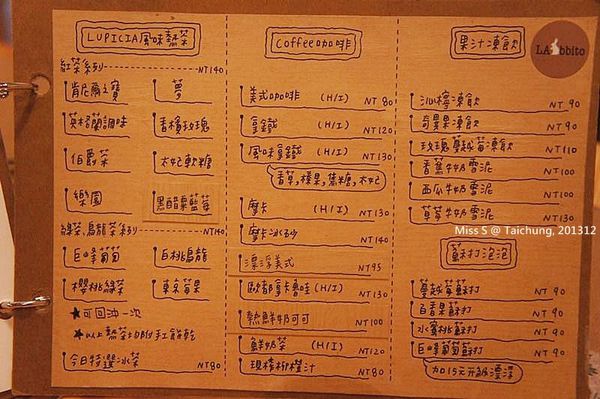 LUPICIA風味熱茶
紅茶系列 NT 140
肯尼亞之寶
夢
英格蘭調味
香檳玫瑰
伯爵茶
太妃軟糖
樂園
黑醋栗藍莓
綠茶.烏龍茶系列 NT 140
巨峰葡萄
白桃烏龍
櫻桃綠茶
★可回沖一次
★以上熱茶均附手工餅乾
今日特選冰茶 NT 80
Coffee咖啡
美式咖啡 (H/I) NT 80
拿鐵 (H/I) NT 120
風味拿鐵 (H/I) NT 130
香草,榛果,焦糖,太妃
摩卡 (H/I) NT 130
摩卡冰砂 NT 140
漂浮美式 NT 95
歐蕾 (H/I) NT 130
熱鮮奶可可 NT 100
鮮奶茶 (H/I) NT 120
現榨柳橙汁 NT 80
果汁凍飲
LAbbito
沁檸凍飲 NT 90
奇異果凍飲 NT 90
玫瑰蔓越莓凍飲 NT 110
香蕉牛奶雪泥 NT 100
西瓜牛奶雪泥 NT 100
草莓牛奶雪泥 NT 130
Miss S @ Taichung, 201312
蘇打泡泡
蔓越莓蘇打 NT 90
百香果蘇打 NT 90
水蜜桃蘇打 NT 90
巨峰葡萄蘇打 NT 90
加15元升級漂浮